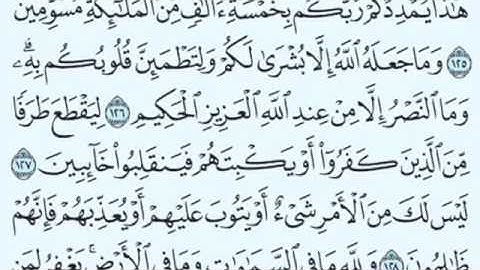 هَٰذَا يُمۡدِدۡكُمۡ رَبُّكُم بِخَمۡسَةِ ءَالَٰفٖ مِّنَ ٱلۡمَلَٰٓئِكَةِ مُسَوِّمِينَ
١٢٥ وَمَا جَعَلَهُ ٱللَّهُ إِلَّا بُشۡرَىٰ لَكُمۡ وَلِتَطۡمَئِنَّ قُلُوبُكُم بِهِۦۗ
وَمَا ٱلنَّصۡرُ إِلَّا مِنۡ عِندِ ٱللَّهِ ٱلۡعَزِيزِ ٱلۡحَكِيمِ ١٢٦ لِيَقۡطَعَ طَرَفٗا
مِّنَ ٱلَّذِينَ كَفَرُوٓاْ أَوۡ يَكۡبِتَهُمۡ فَيَنقَلِبُواْ خَآئِبِينَ ١٢٧
لَيۡسَ لَكَ مِنَ ٱلۡأَمۡرِ شَيۡءٌ أَوۡ يَتُوبَ عَلَيۡهِمۡ أَوۡ يُعَذِّبَهُمۡ فَإِنَّهُمۡ
ظَٰلِمُونَ ١٢٨ وَلِلَّهِ مَا فِي ٱلسَّمَٰوَٰتِ وَمَا فِي ٱلۡأَرۡضِۚ يَغۡفِرُ لِمَن